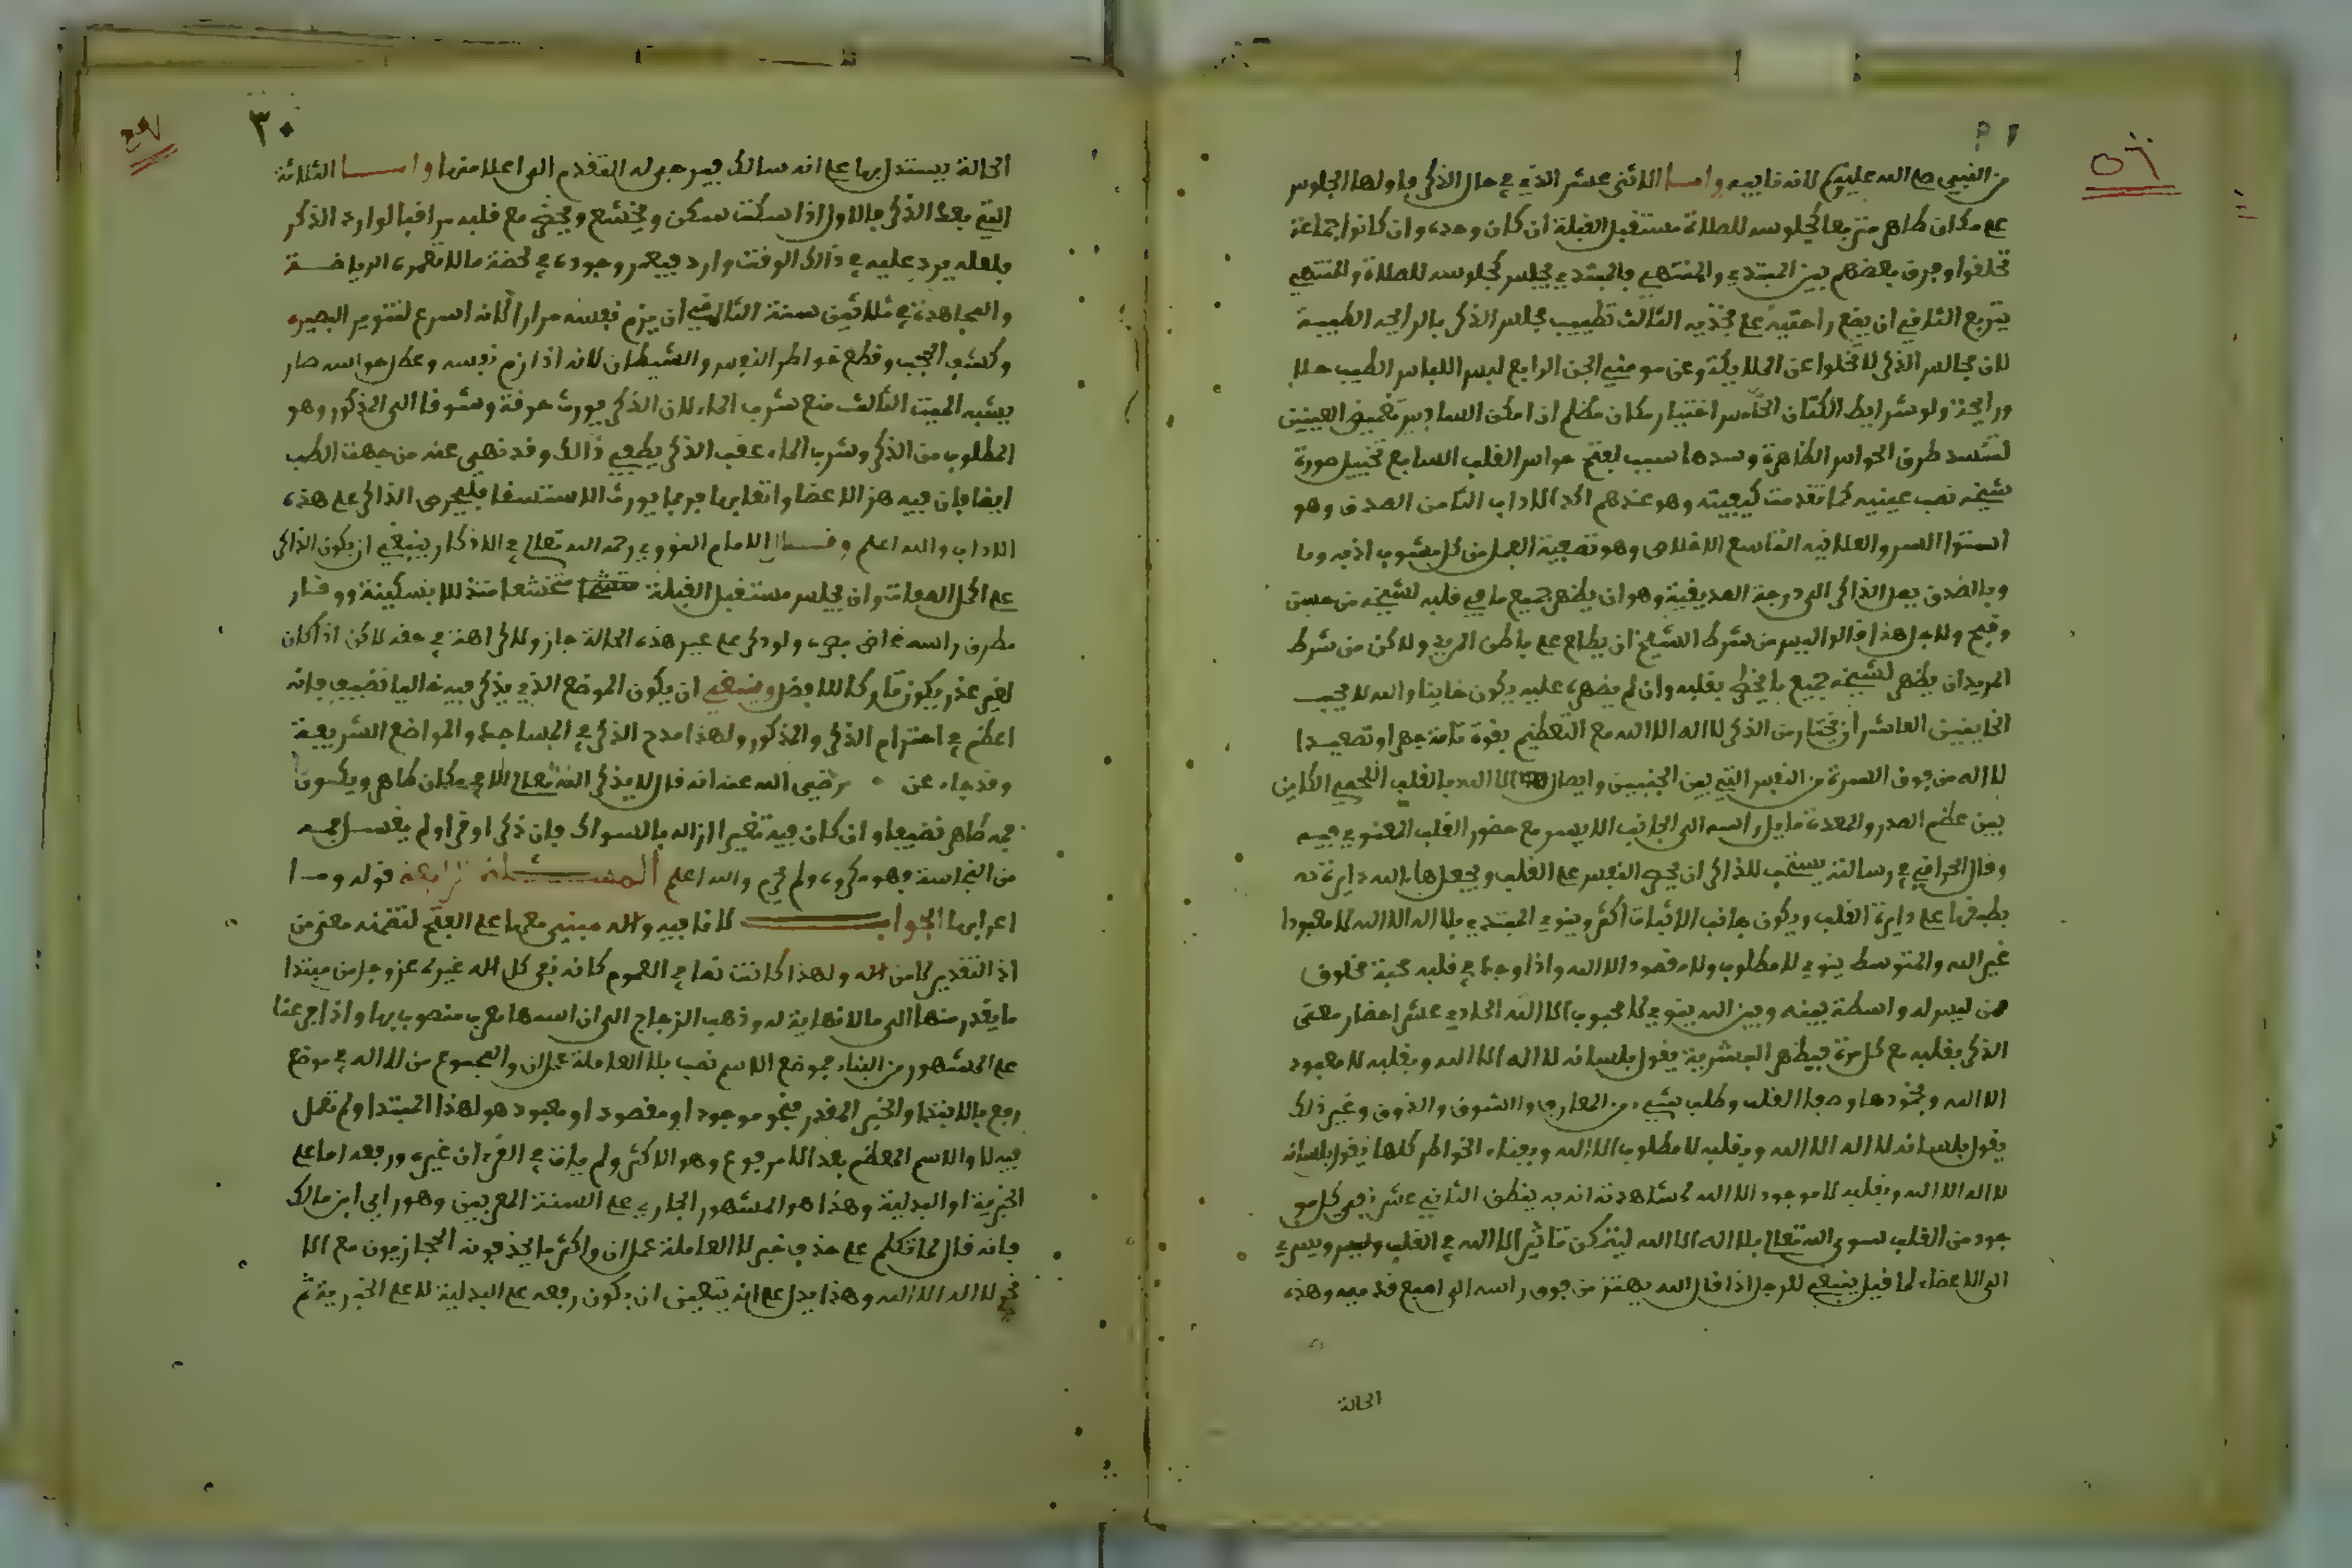 من النبي صلى الله عليه وسلم لانه نايبه واما الاثنى عشر الذي في حال الذكر فاولها الجلوس
على مكان طاهر متربعا كجلوسه للصلاة مستقبل القبلة ان كان وحده وان كانوا جماعة
تحلقوا وفرق بعضهم بين المبتدي والمنتهي فالمبتدي يجلس كجلوسه للصلاة والمنتهي
يتربع الثاني ان يضع راحتيه على فخذيه الثالث تطييب مجلس الذكر بالرايحة الطيبة
لان مجالس الذكر لا تخلوا عن الملايكة وعن مومني الجن الرابع لبس اللباس الطيب حلا
ورايحة ولو شرايط الكتان الخامس اختيار مكان مظلم ان امكن السادس تغميض العينين
لتنسد طرق الحواس الظاهرة وسدها سبب لفتح حواس القلب السابع تخييل صورة
شيخه نصب عينيه كما تقدمت كيفيته وهو عندهم اكد الاداب الثامن الصدق وهو
استوا السر والعلانيه التاسع الاخلاص وهو تصفية العمل من كل مشوب اذبه وما
وبالصدق يصل الذاكر الى درجة الصديقية وهو ان يظهر جميع ما في قلبه لشيخه من حسن
وقبح ولاجل هذا قالوا ليس من شرط الشيخ ان يطلع على باطن المريد ولاكن من شرط
المريد ان يظهر لشيخه جميع ما يخطر بقلبه وان لم يظهره عليه يكون خاينا والله لا يحب
الخاينين العاشر ان يختار من الذكر لا اله الا الله مع التعظيم بقوة تامة جهرا وتصعيدا
لا اله من فوق السرة من النفس التي بين الجنبين وايصال الا الله بالقلب اللحمي الكاين
بين عظم الصدر والمعدة مايل راسه الى الجانب الايسر مع حضور القلب المعنوي فيه
وقال الخرافي في رسالته يستحب للذاكر ان يجري النفس على القلب ويجعل هاء الله دايرة ثم
يطبقها على دايرة القلب ويكون جانب الاثبات اكثر وينوي المبتدي بلا اله الا الله لا معبودا
غير الله والمتوسط ينوي لا مطلوب ولا مقصود الا الله واذا وجد في قلبه محبة مخلوق
ممن ليس له واسطة بينه وبين الله ينوي لا محبوب الا الله الحادي عشر احضار معنى
الذكر بقلبه مع كل مرة فيظهر البشرية يقول بلسانه لا اله الا الله وبقلبه لا معبود
الا الله وبخمودها وصفا القلب وطلب شيء من المعارف والشوق والذوق وغير ذلك
يقول بلسانه لا اله الا الله وبقلبه لا مطلوب الا الله وبفناء الخواطر كلها يقول بلسانه
لا اله الا الله وبقلبه لا موجود الا الله لمشاهدته انه به ينطق الثاني عشر نفي كل مو
جود من القلب سوى الله تعالى بلا اله الا الله ليتمكن تاثير الا الله في القلب ويسري
الى الاعضاء كما قيل ينبغي للرجل اذا قال الله يهتز من فوق راسه الى اصبع قدميه وهذه
الحالة
٣٠
الحالة يستدل بها على انه سالك فيرجى له التقدم الى اعلا منها واما الثلاثة
التي بعد الذكر فالاول اذا سكت سكن ويخشع ويحضر مع قلبه مراقبا لوارد الذكر
فلعله يرد عليه في ذالك الوقت وارد فيعمر وجوده في لحضة ما لا تعمره الرياضة
والمجاهدة في ثلاثين سنة الثاني ان يزم نفسه مرارا لانه اسرع لتنوير البصيره
وكشف الحجب وقطع خواطر النفس والشيطان لانه اذا زم نفسه وعطل حواسه صار
يشبه الميت الثالث منع شرب الماء لان الذكر يورث حرقة وشوقا الى المذكور وهو
المطلوب من الذكر وشرب الماء عقب الذكر يطفي ذالك وقد نهي عنه من جهت الطب
ايضا فان فيه هز الاعضا واتعابها فربما يورث الاستسقا فليحرص الذاكر على هذه
الاداب والله اعلم وقال الامام النووي رحمه الله تعالى في الاذكار ينبغي ان يكون الذاكر
على اكمل الصفات وان يجلس مستقبل القبلة متخشعا متذللا بسكينة ووقار
مطرق راسه غاض بصره ولو ذكر على غير هذه الحالة جاز ولا كراهة في حقه لاكن اذا كان
لغير عذر يكون تاركا للافضل وينبغي ان يكون الموضع الذي يذكر فيه خاليا نضيفا فانه
اعظم في احترام الذكر والمذكور ولهذا مدح الذكر في المساجد والمواضع الشريفة
وقد جاء عن رضي الله عنه انه قال لا يذكر الله تعالى الا في مكان طاهر ويكون
فمه طاهر نضيفا وان كان فيه تغير ازاله بالسواك فان ذكر او قرا ولم يغسل فمه
من النجاسة فهو مكروه ولم يحرم والله اعلم المسئلة الرابعة قوله وما
اعرابها الجواب لا نافيه واله مبني معها على الفتح لتضمنه معنى من
اذ التقدير لا من اله ولهذا كانت نصا في العموم كانه نفي كل اله غيره عز وجل من مبتدا
ما يقدر منها الى ما لا نهاية له وذهب الزجاج الى ان اسمها معرب منصوب بها واذا فرعنا
على المشهور من البناء فموضع الاسم نصب بلا العاملة عمل ان والمجموع من لا اله في موضع
رفع بالابتدا والخبر المقدر فنحو موجود او مقصود او معبود هو لهذا المبتدا ولم تعمل
فيه لا والاسم المعظم بعد الا مرفوع وهو الاكثر ولم يات في القرءان غيره ورفعه اما على
الخبرية او البدلية وهذا هو المشهور الجاري على السنة المعربين وهو راي ابن مالك
فانه قال لما تكلم على حذف خبر لا العاملة عمل ان واكثر ما يحذفونه الحجازيون مع الا
نحو لا اله الا الله وهذا يدل على انه يتعين ان يكون رفعه على البدلية لا على الخبرية ثم